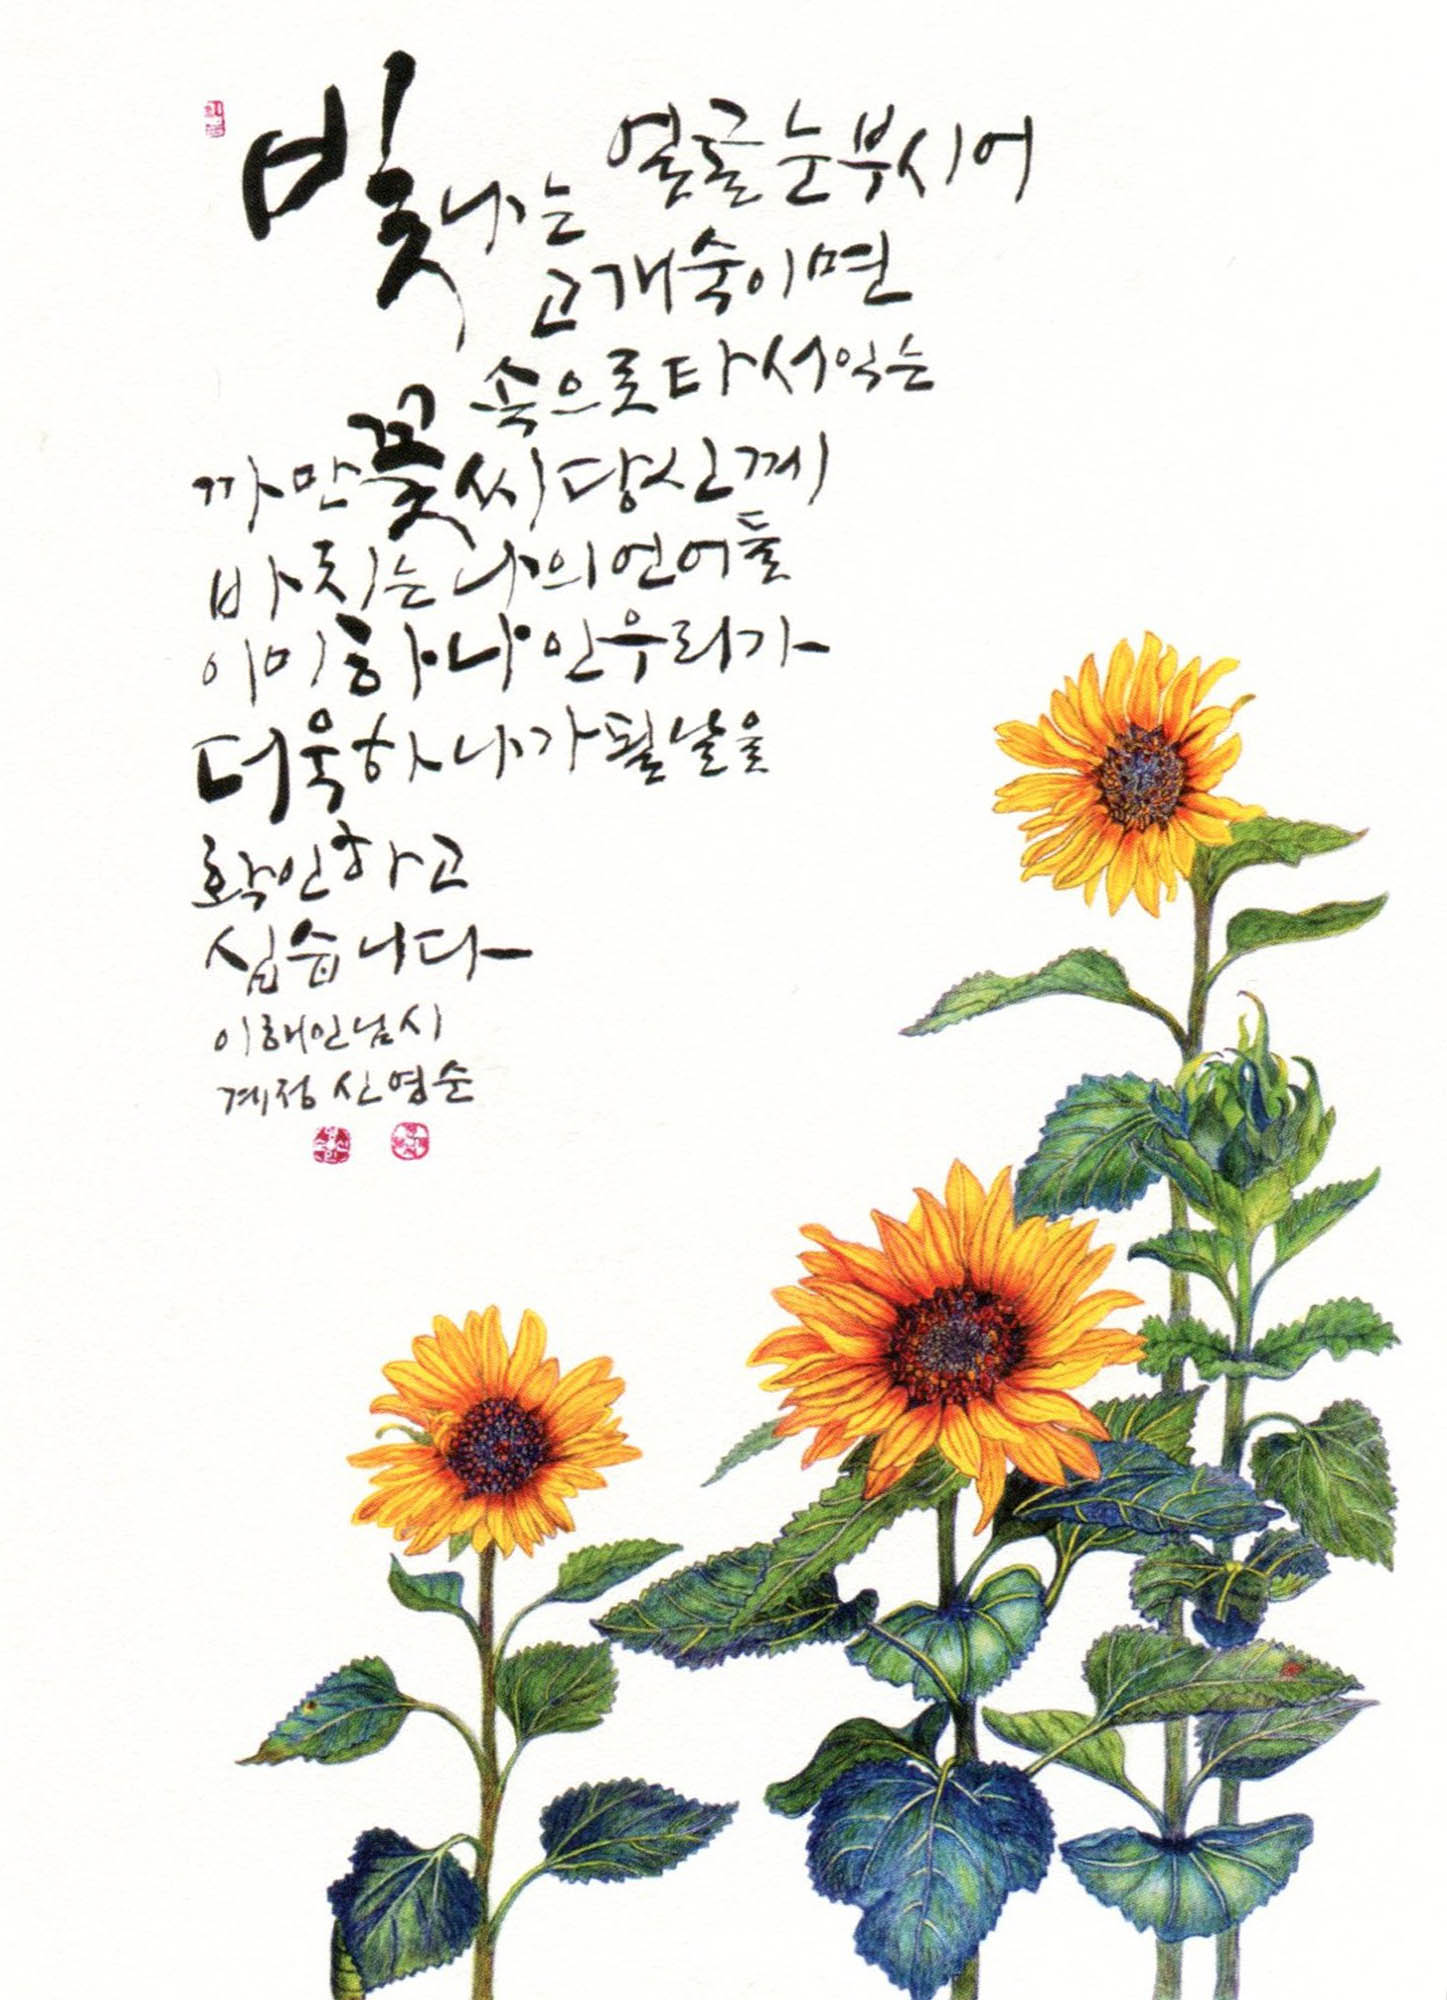 빛나는 얼굴 눈부시어
고개 숙이면
속으로 타서 익는
까만 꽃씨 당신께
바치는 나의 언어들
이미 하나인 우리가
더욱 하나가 될 날을
확인하고
싶습니다
이해인님 시
계정 신영순